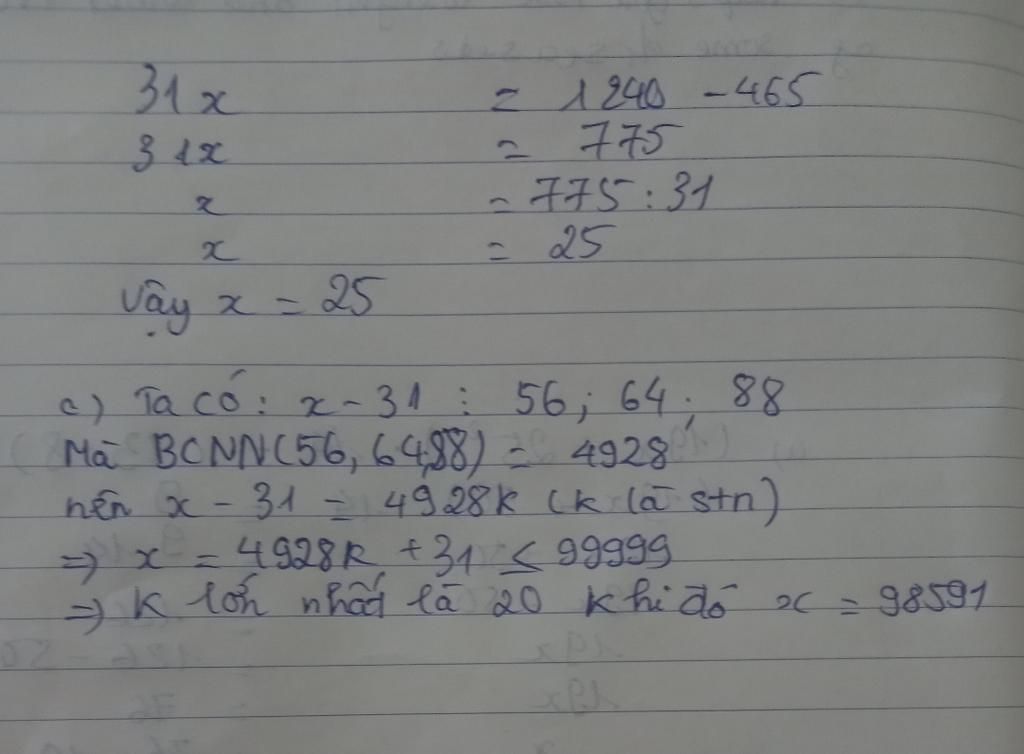 31x = 1240 - 465
31x = 775
x = 775 : 31
x = 25
Vậy x = 25
c) Ta có: x - 31 ⋮ 56; 64; 88
Mà BCNN(56, 64,88) = 4928
nên x - 31 = 4928k (k là stn)
=> x = 4928k + 31 ≤ 99999
=> K lớn nhất là 20 khi đó x = 98591